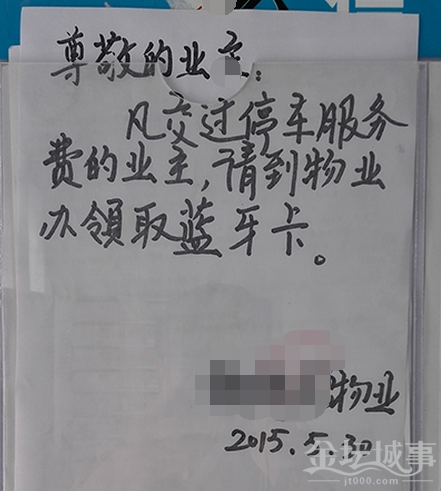 尊敬的业主:
凡交过停车服务
费的业主,请到物业
办領取蓝牙卡。
物业
2015.5.30
金坛城事
jt000.com